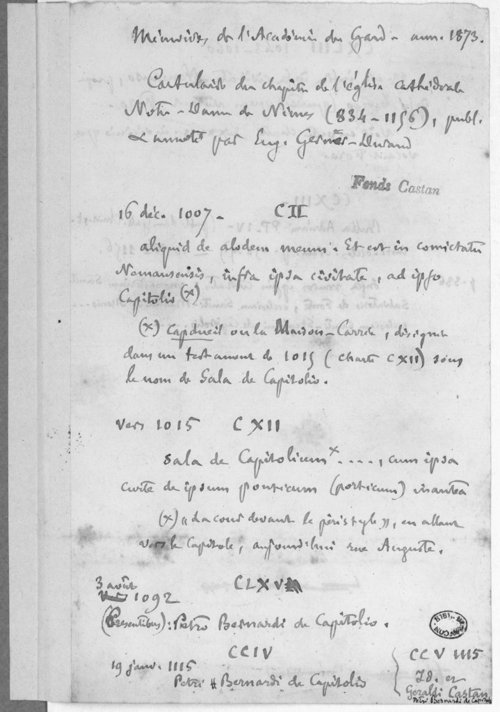 Mémoires de l'Académie du Gard - ann. 1873.
Cartulaire du chapitre de l'église cathédrale
Notre-Dame de Nîmes (834-1156), publ.
& annoté par Eug. Germer-Durand
Fonds Castan
16 déc. 1007. CII
aliquid de alodem meum. Et est in comitatu
Nemausensis, infra ipsa civitate, ad ipso
Capitolio (x)
(x) Capdueil ou la Maison-Carrée, désignée
dans un testament de 1015 (charte CXII) sous
le nom de Sala de Capitolio.
vers 1015 CXII
Sala de Capitolium x ...., cum ipsa
curte de ipsum ponticum (porticum)
(x) « La cour devant le péristyle », en allant
vers le Capitole, aujourd'hui rue Auguste.
3 août 1092 CLXV
(Presentibus): Petro Bernardi de Capitolio.
CCIV
19 janv. 1115
Petri Bernardi de Capitolio
CCV 1115
Id. et
Geraldi Castan
Petri Bernardi de Capitolio